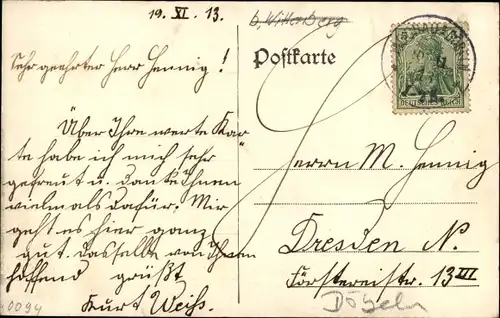 19. XI. 13.
b. Wittenberg
Postkarte
Sehr geehrter Herr Hennig!
Über Ihre werte Kar
te habe ich mich sehr
gefreut u. danke Ihnen
vielmals dafür. Mir
geht es hier ganz
gut. Dasselbe von Ihnen
hoffend grüßt
Kurt Weiß.
DEUTSCHES REICH
Herrn M. Hennig
Dresden N.
Förstereistr. 13 III
Döbeln
0094